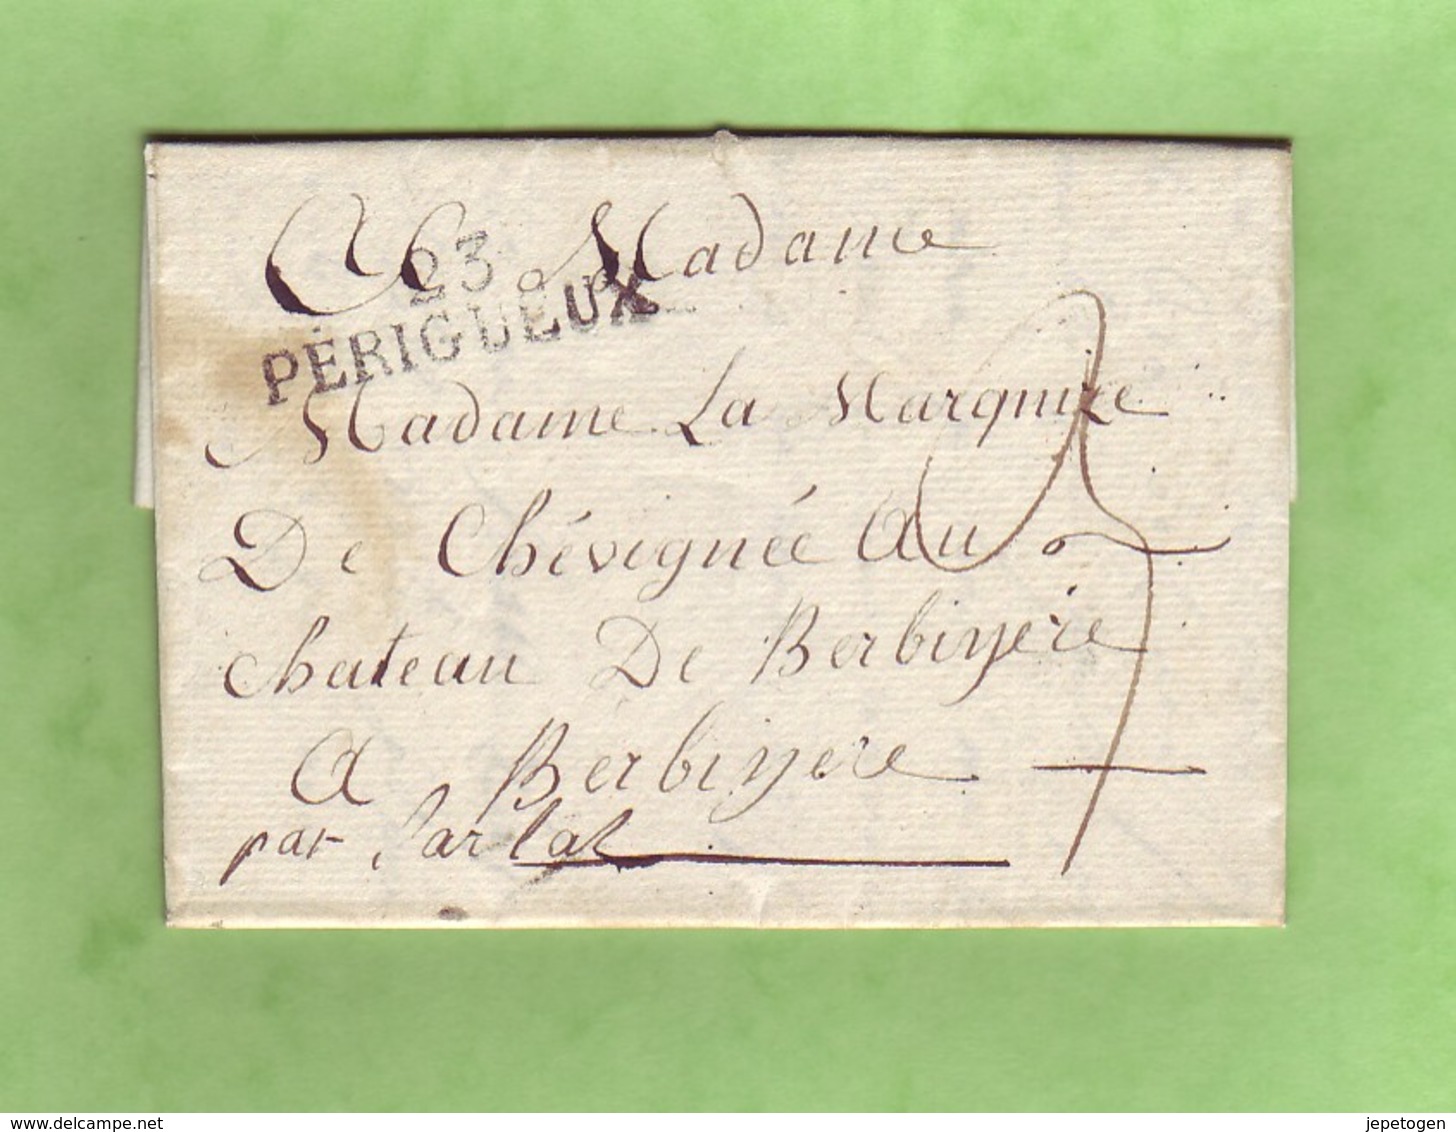 A Madame
23
PÉRIGUEUX
Madame La Marquize
De Chévignée au
chateau De Berbiyére
A Berbiyere
par Sarlat
delcampe.net
jepetogen